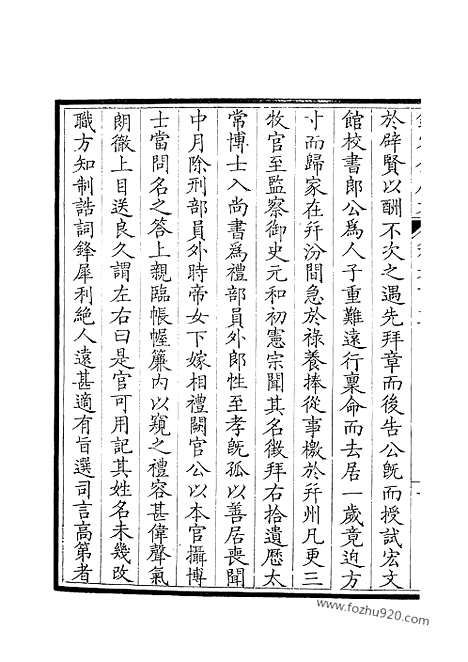 於辟賢以酬不次之遇先拜章而後告公旣而授試宏文
館校書郞公爲人子重難遠行稟命而去居一歲竟迫方
寸而歸家在幷汾間急於祿養捧從事檄於幷州凡更三
牧官至監察御史元和初憲宗聞其名徵拜右拾遺歷太
常博士入尚書爲禮部員外郞性至孝旣孤以善居喪聞
中月除刑部員外時帝女下嫁相禮闕官公以本官攝博
士當問名之答上親臨帳幄簾內以窺之禮容甚偉聲氣
朗徹上目送良久謂左右曰是官可用記其姓名未幾改
職方知制誥詞鋒犀利絶人遠甚適有旨選司言高第者
www.fozhu920.com